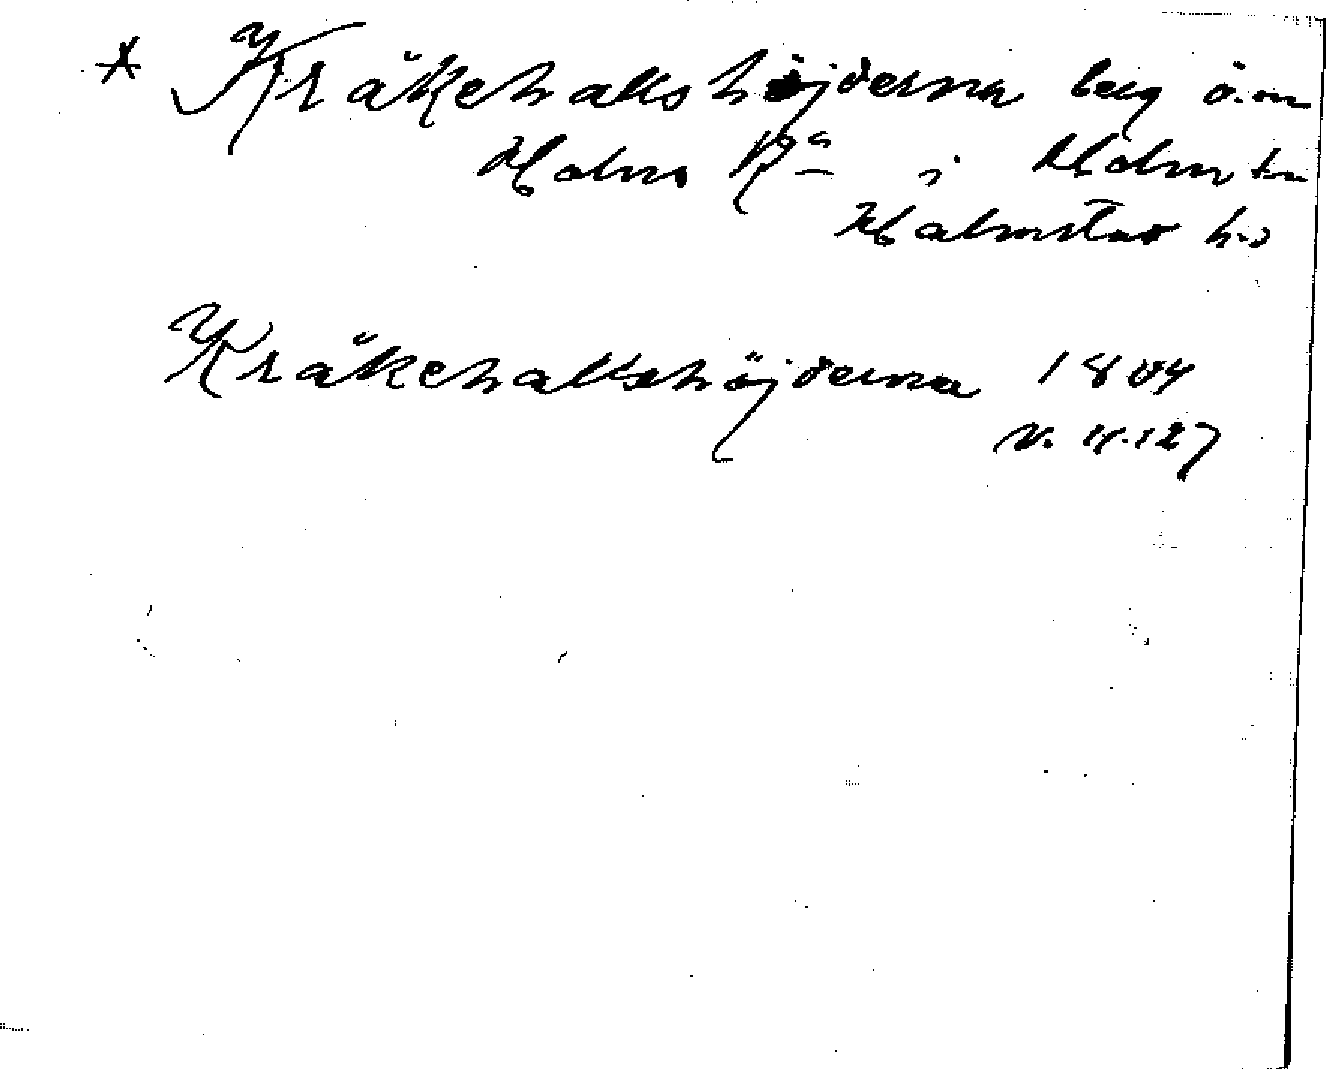 * Kräkehallshöjderna berg ö.om
Holms Ka i Holm sn
Halmstad hd
Kräkehallshöjderna 1804
N. 4.127